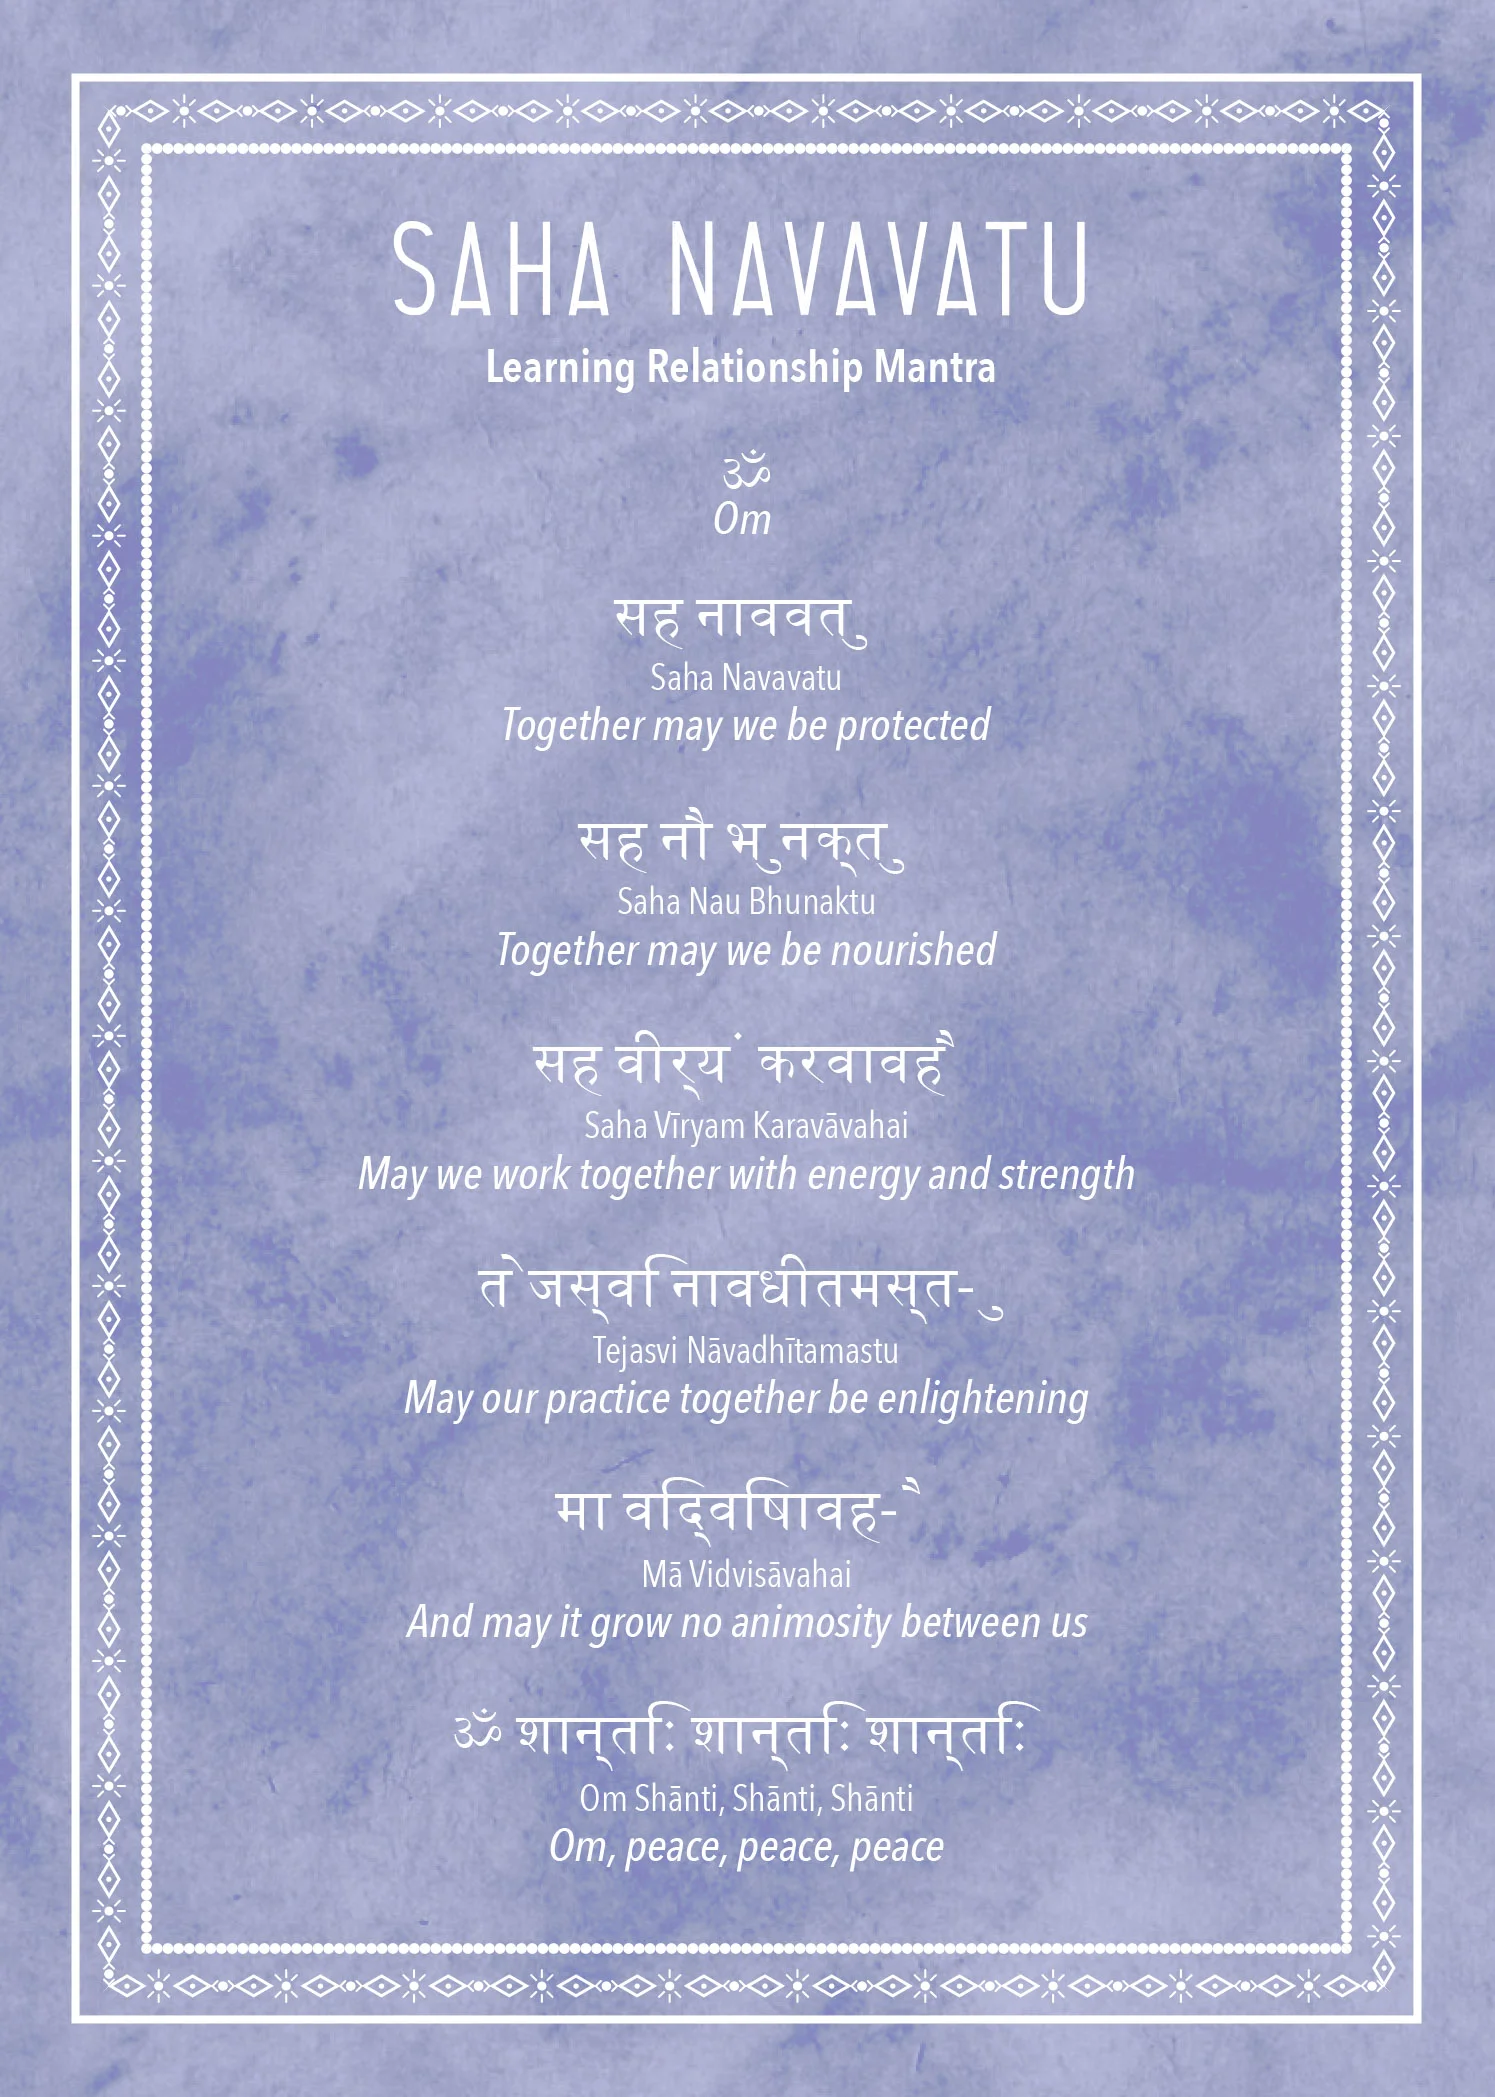 SAHA NAVAVATU
Learning Relationship Mantra
ॐ
Om
सह नाववतु
Saha Navavatu
Together may we be protected
सह नौ भुनक्तु
Saha Nau Bhunaktu
Together may we be nourished
सह वीर्यं करवावहै
Saha Vīryam Karavāvahai
May we work together with energy and strength
तेजस्वि नावधीतमस्त-ु
Tejasvi Nāvadhītamastu
May our practice together be enlightening
मा वद्विषिावह-ै
Mā Vidvisāvahai
And may it grow no animosity between us
ॐ शान्तिः शान्तिः शान्तिः
Om Shānti, Shānti, Shānti
Om, peace, peace, peace